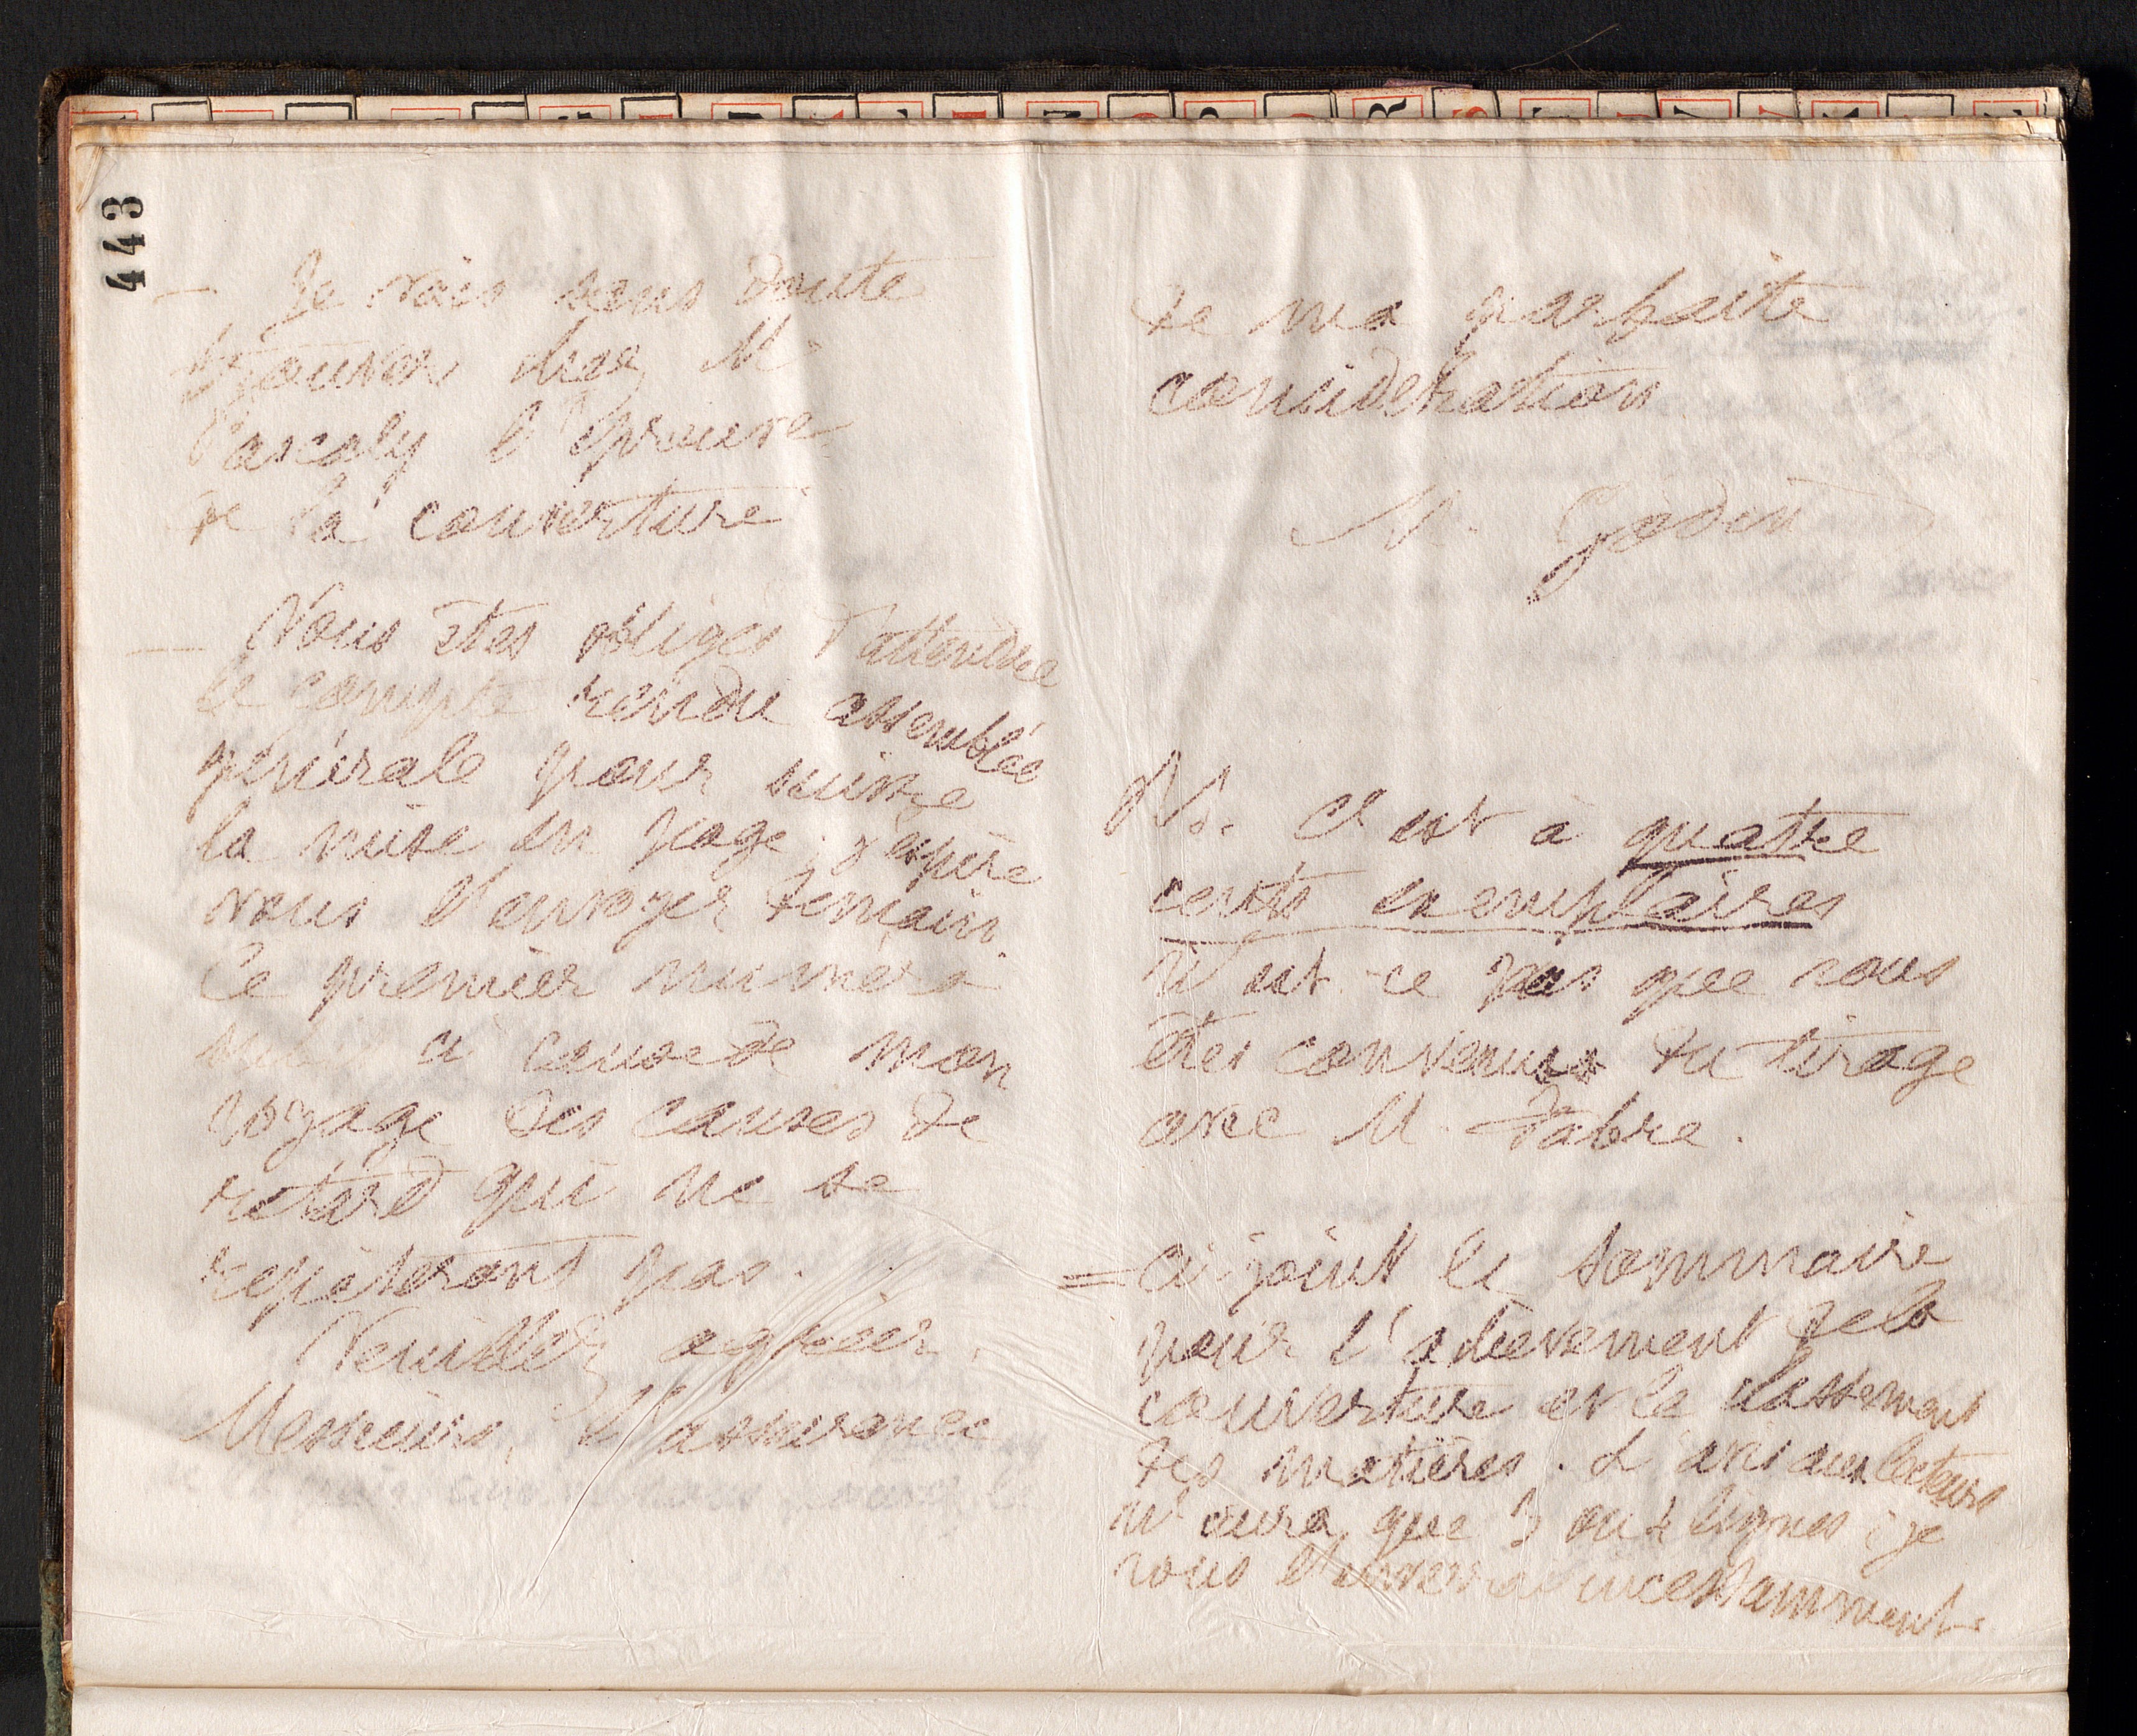 443
— Je vais sans doute
trouver chez M.
Pascaly l'épreuve
de la couverture
— Vous êtes obligés d'attendre
le compte rendu assemblée
générale pour suivre
la mise en page ; j'espère
vous l'envoyer demain.
Ce premier numéro
subit à cause de mon
voyage des causes de
retard qui ne se
répèteront pas.
Veuillez agréer,
Messieurs, l'assurance
de ma parfaite
considération
M. Godin
C'est à quatre
cents exemplaires
n'est-ce pas que vous
êtes convenus du tirage
avec M. Fabre.
= Ci-joint le sommaire
pour l'achèvement de la
couverture et le classement
des matières. L'avis aux lecteurs
n'aura que 3 ou 4 lignes ; je
vous l'enverrai incessamment.